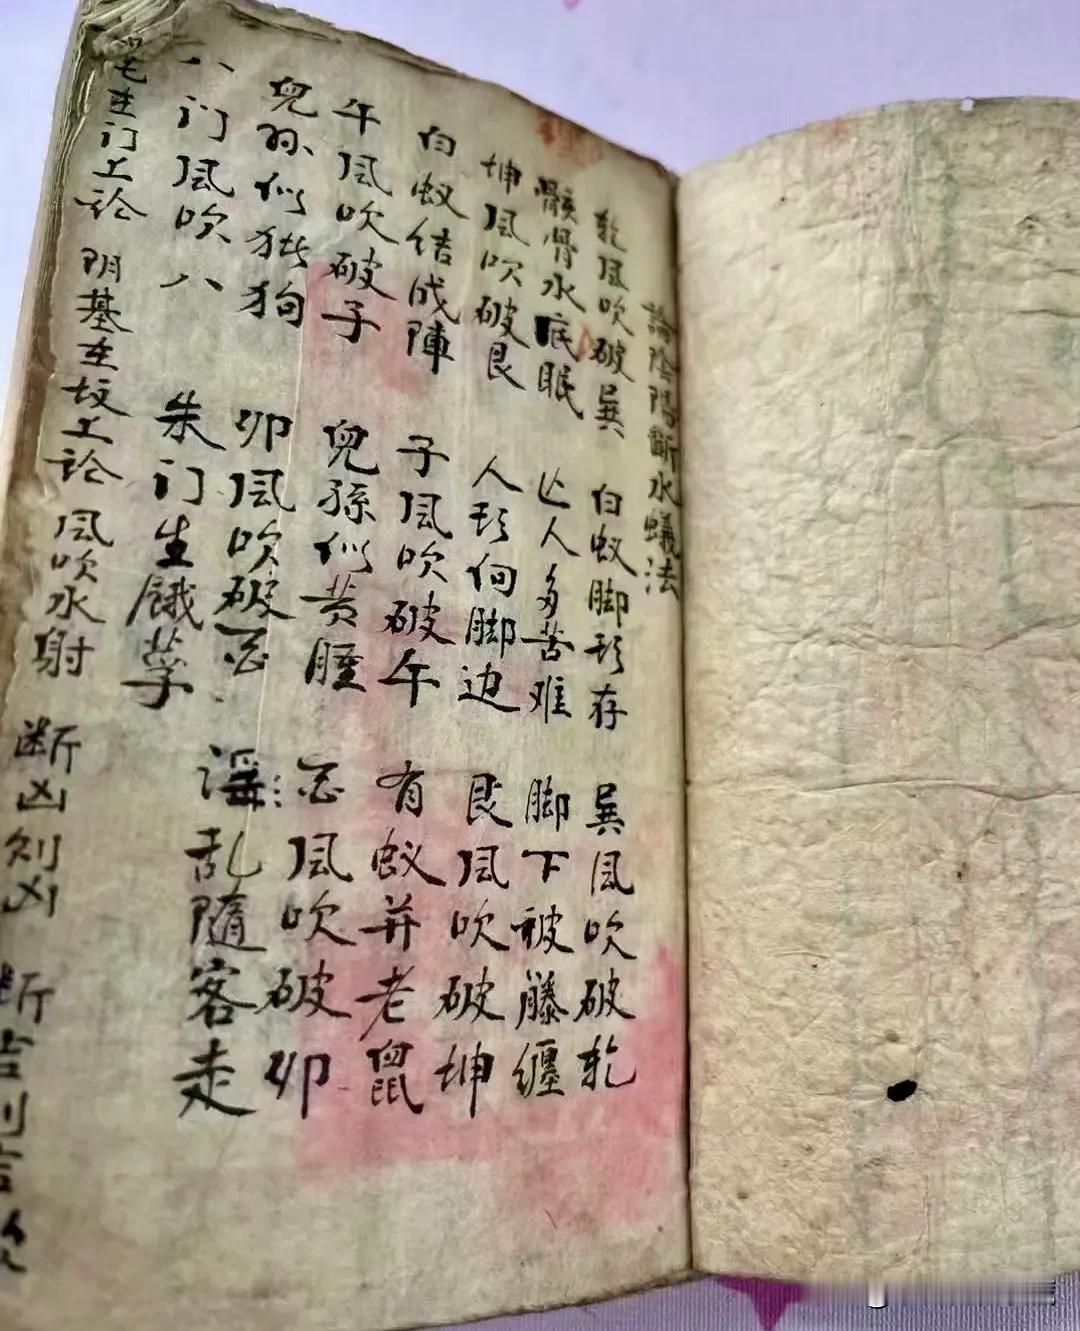 論陰陽斷水蟻法
乾风吹破巽 白蚁脚形存 巽风吹破乾
骸骨水底眠 亡人多苦难 脚下被藤缠
坤风吹破艮 人形向脚边 艮风吹破坤
白蚁结成陣 子风吹破午 有蚁并老鼠
午风吹破子 兒孫似黄腫 酉风吹破卯
兒孙似猪狗 卯风吹破酉 淫乱隨客走
八门风吹八 朱门生餓莩
宅在门上论 阴基在坟上论 风吹水射 断凶则凶 断吉则吉